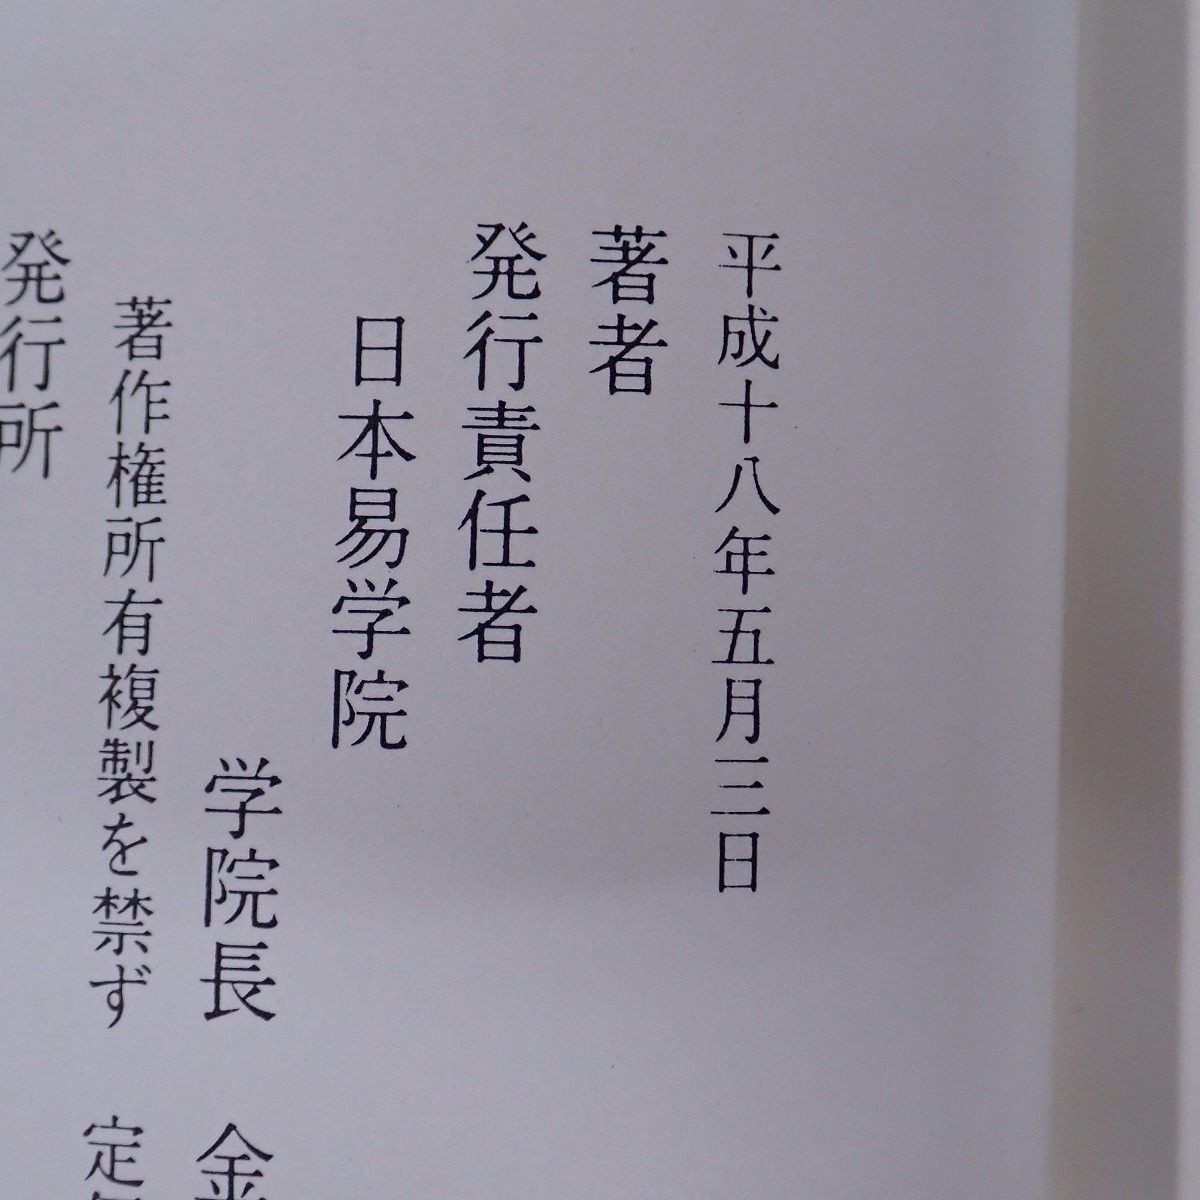 平成十八年五月三日
著者
発行責任者
日本易学院
学院長 金
著作権所有複製を禁ず 定
発行所